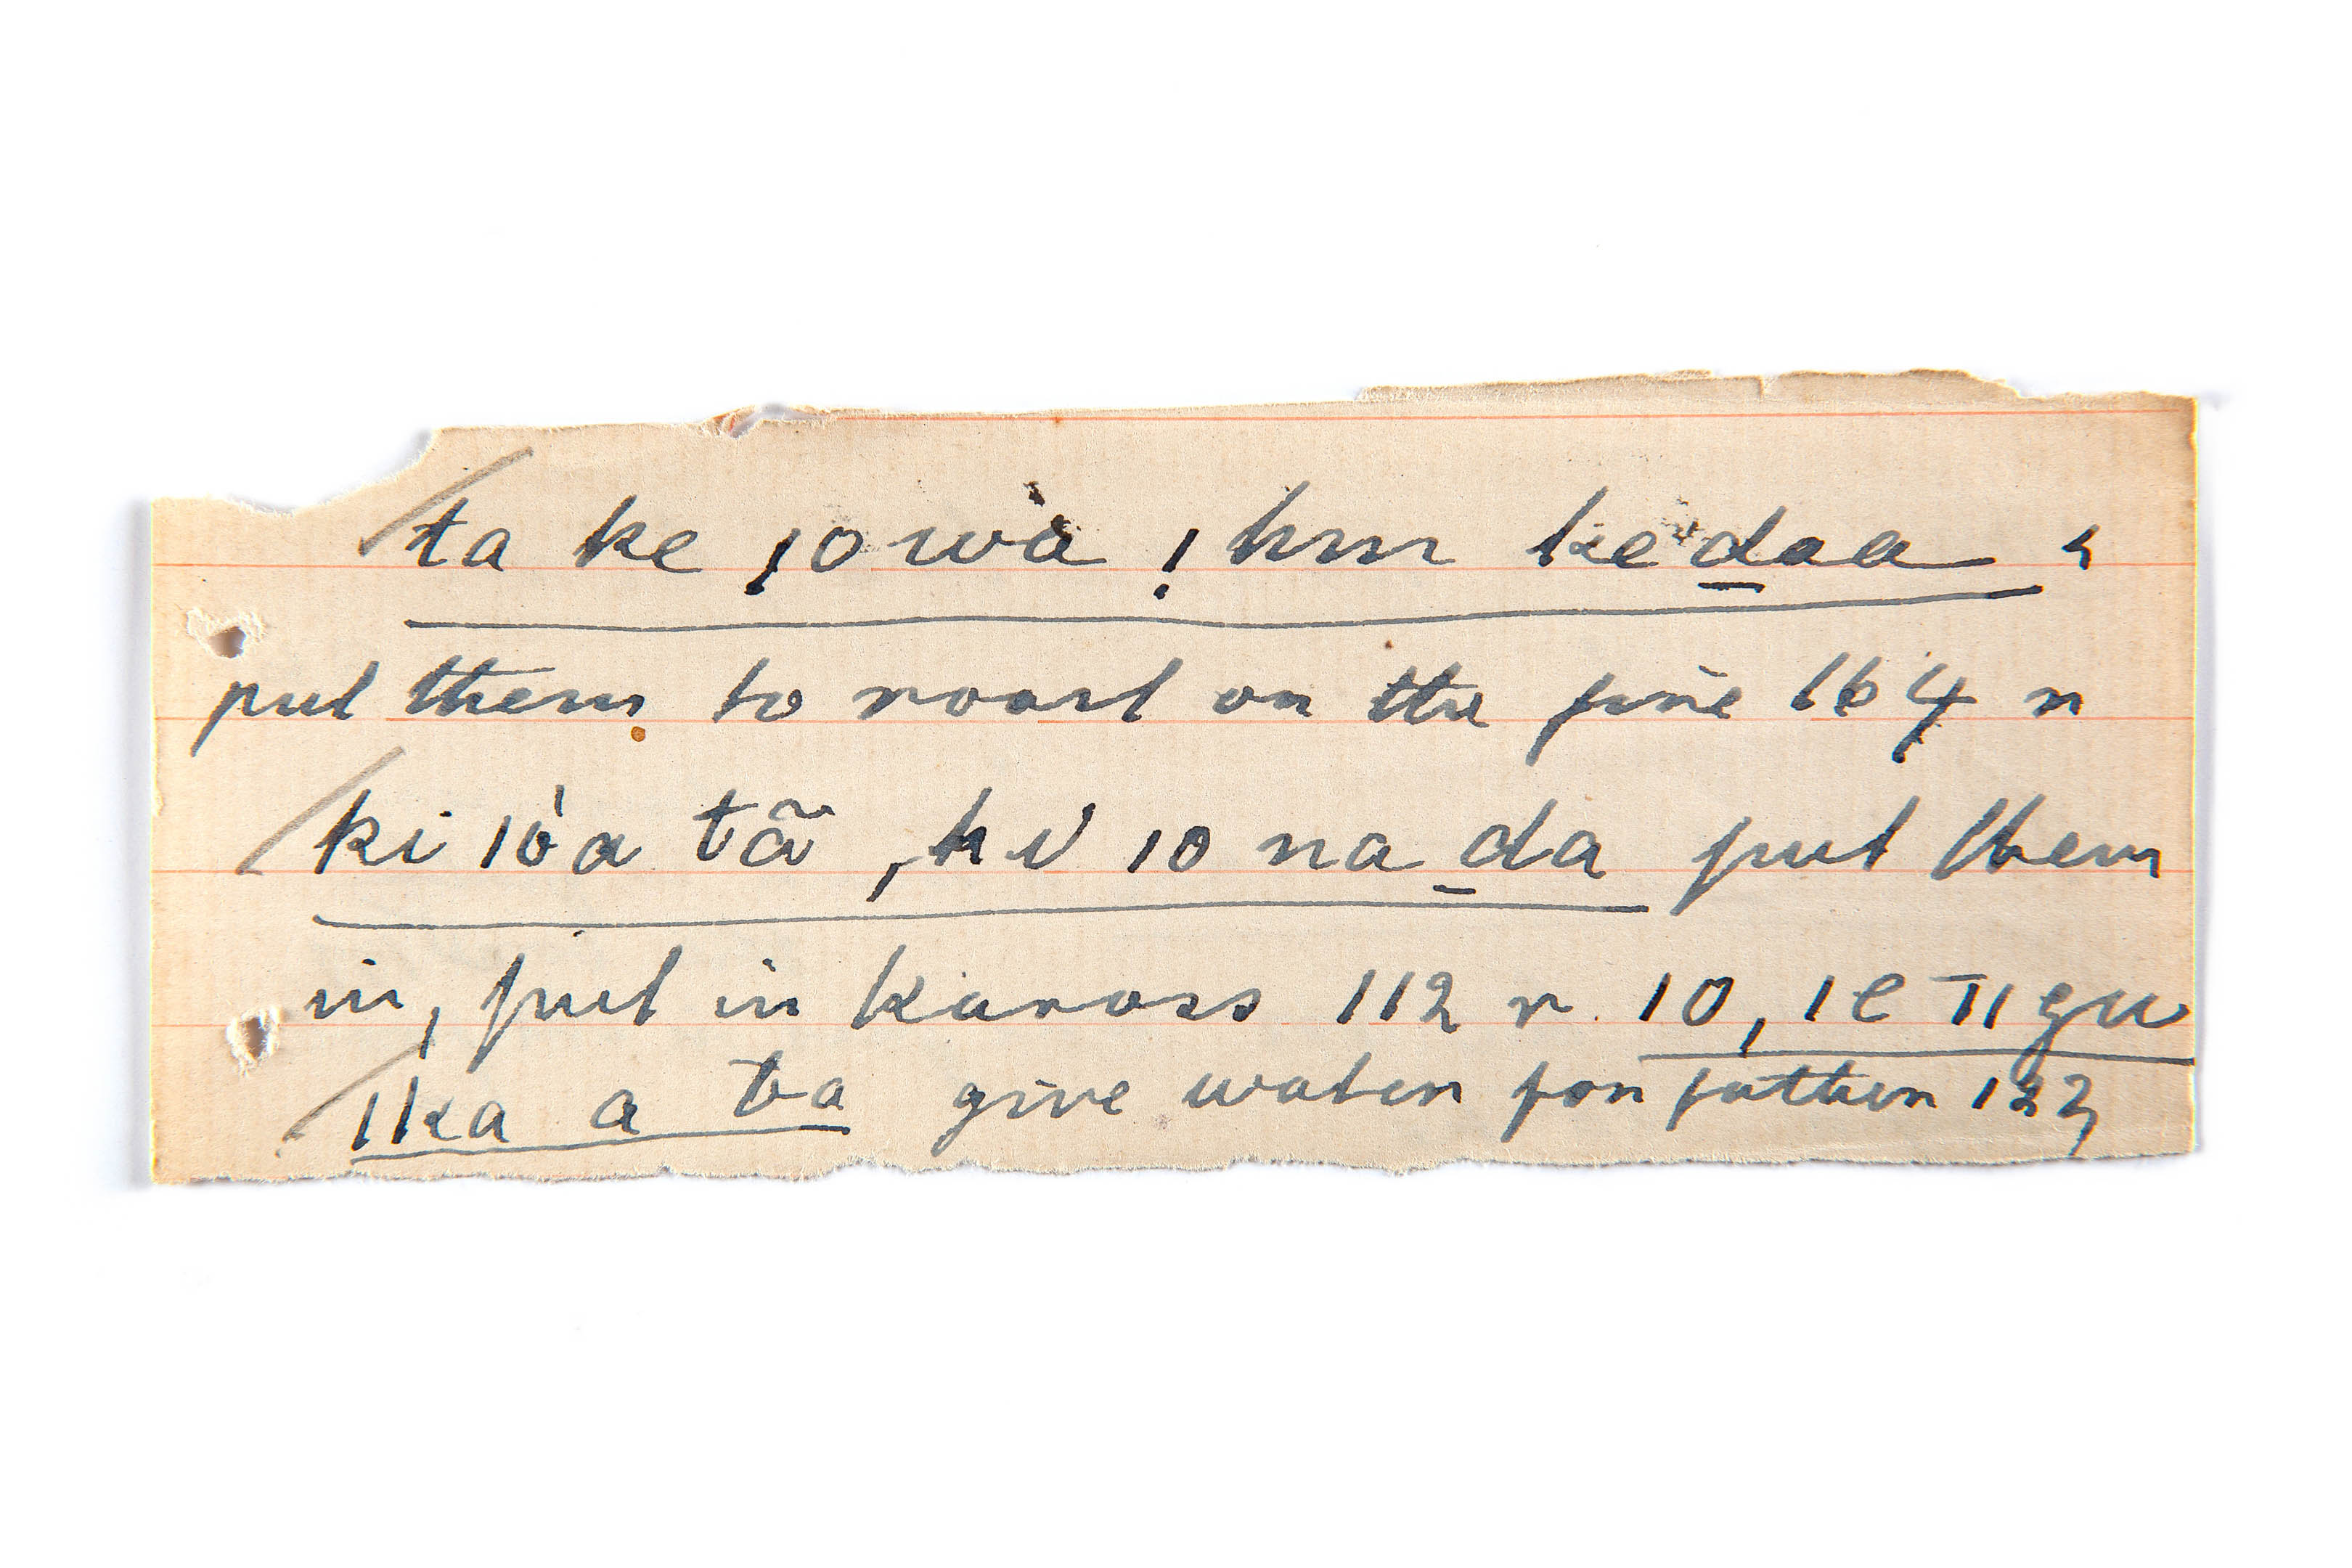 ta ke ǀo wa ! hm ke daa
put them to roast on the fire 164 r
ki ǀó a tã , hi ǀo na da put them
in, put in kaross 112 r. ǀo, ǀe TI gu
ǀka a ta give water for father 123